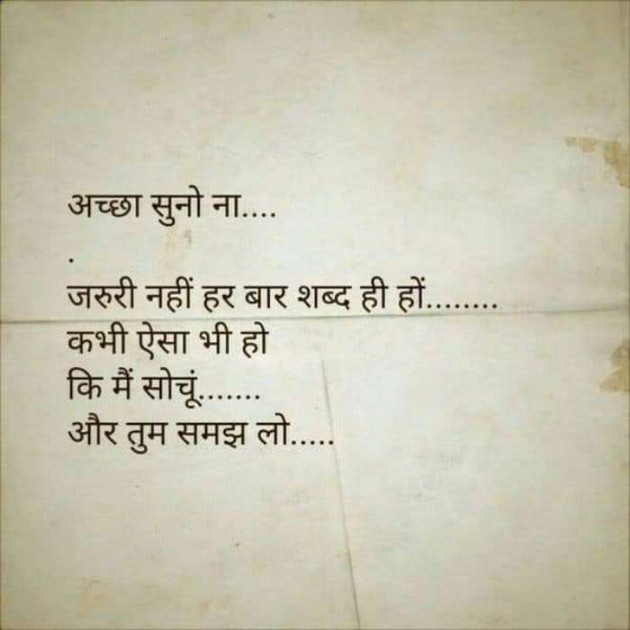 अच्छा सुनो ना....
.
जरुरी नहीं हर बार शब्द ही हों........
कभी ऐसा भी हो
कि मैं सोचूं.......
और तुम समझ लो.....